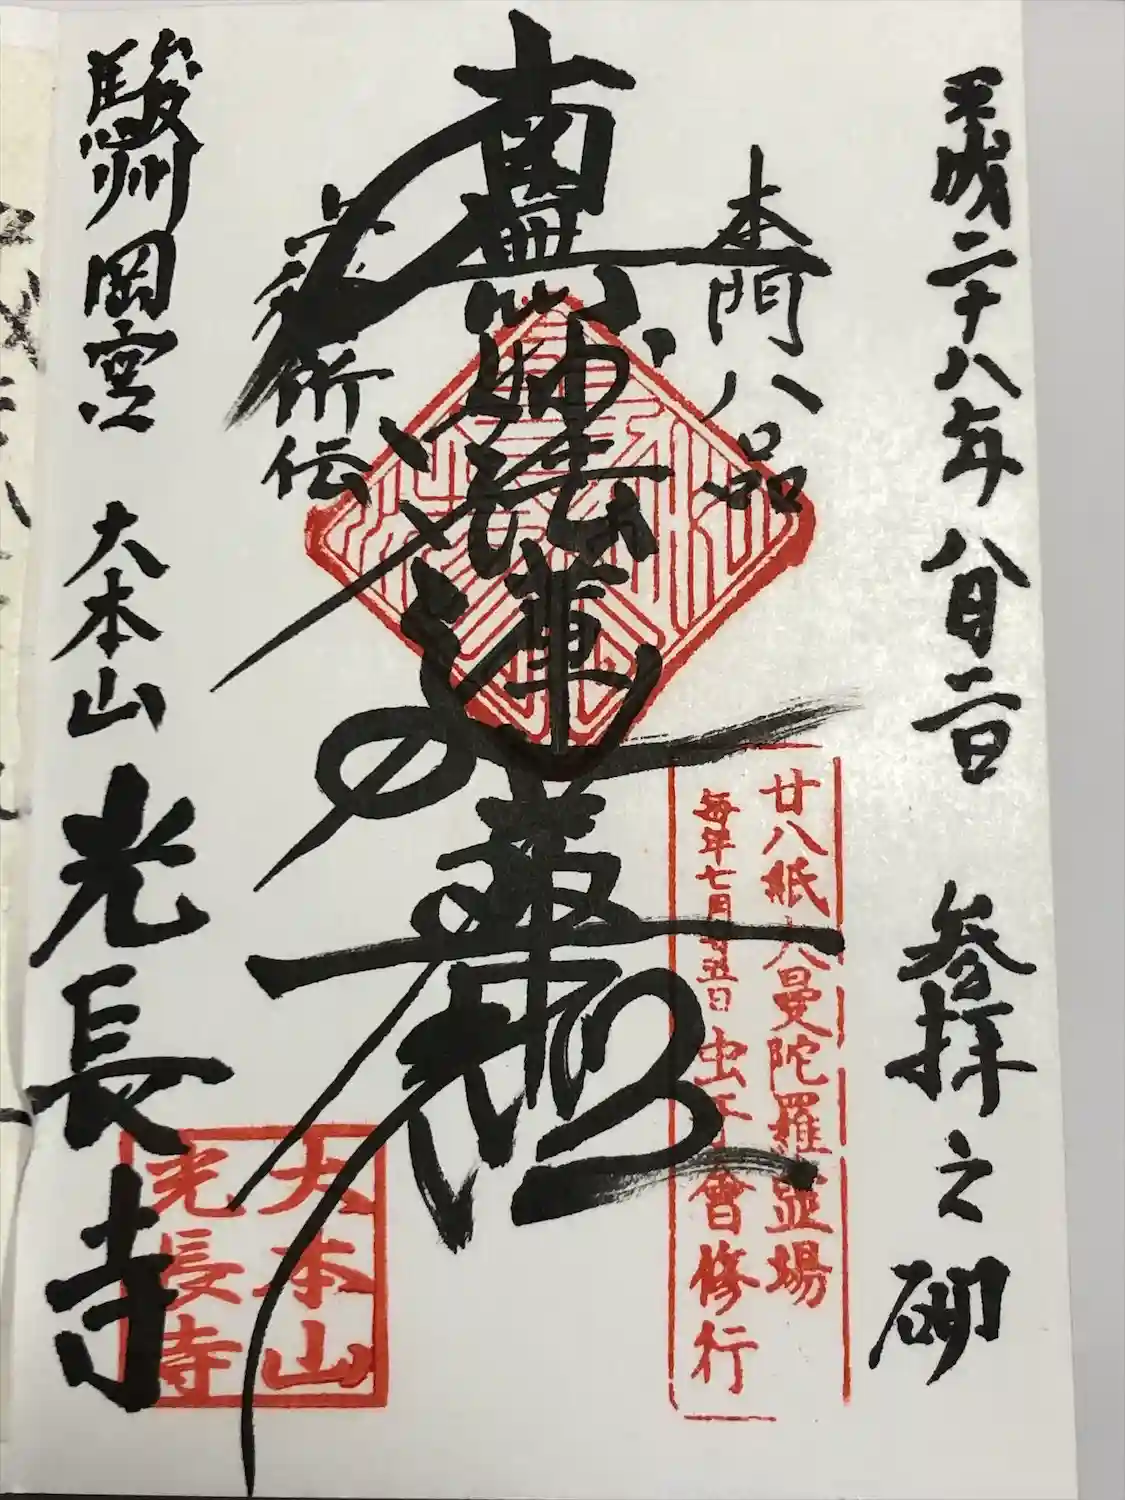 平成二十八年八月二日 参拝之砌
本門八品
南無妙法蓮華経
所伝
駿州岡宮 大本山 光長寺
廿八紙大曼陀羅霊場
毎年七月廿五日 虫干會修行
大本山
光長寺